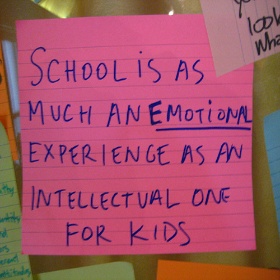 SCHOOL IS AS
MUCH AN EMOTIONAL
EXPERIENCE AS AN
INTELLECTUAL ONE
FOR KIDS
look